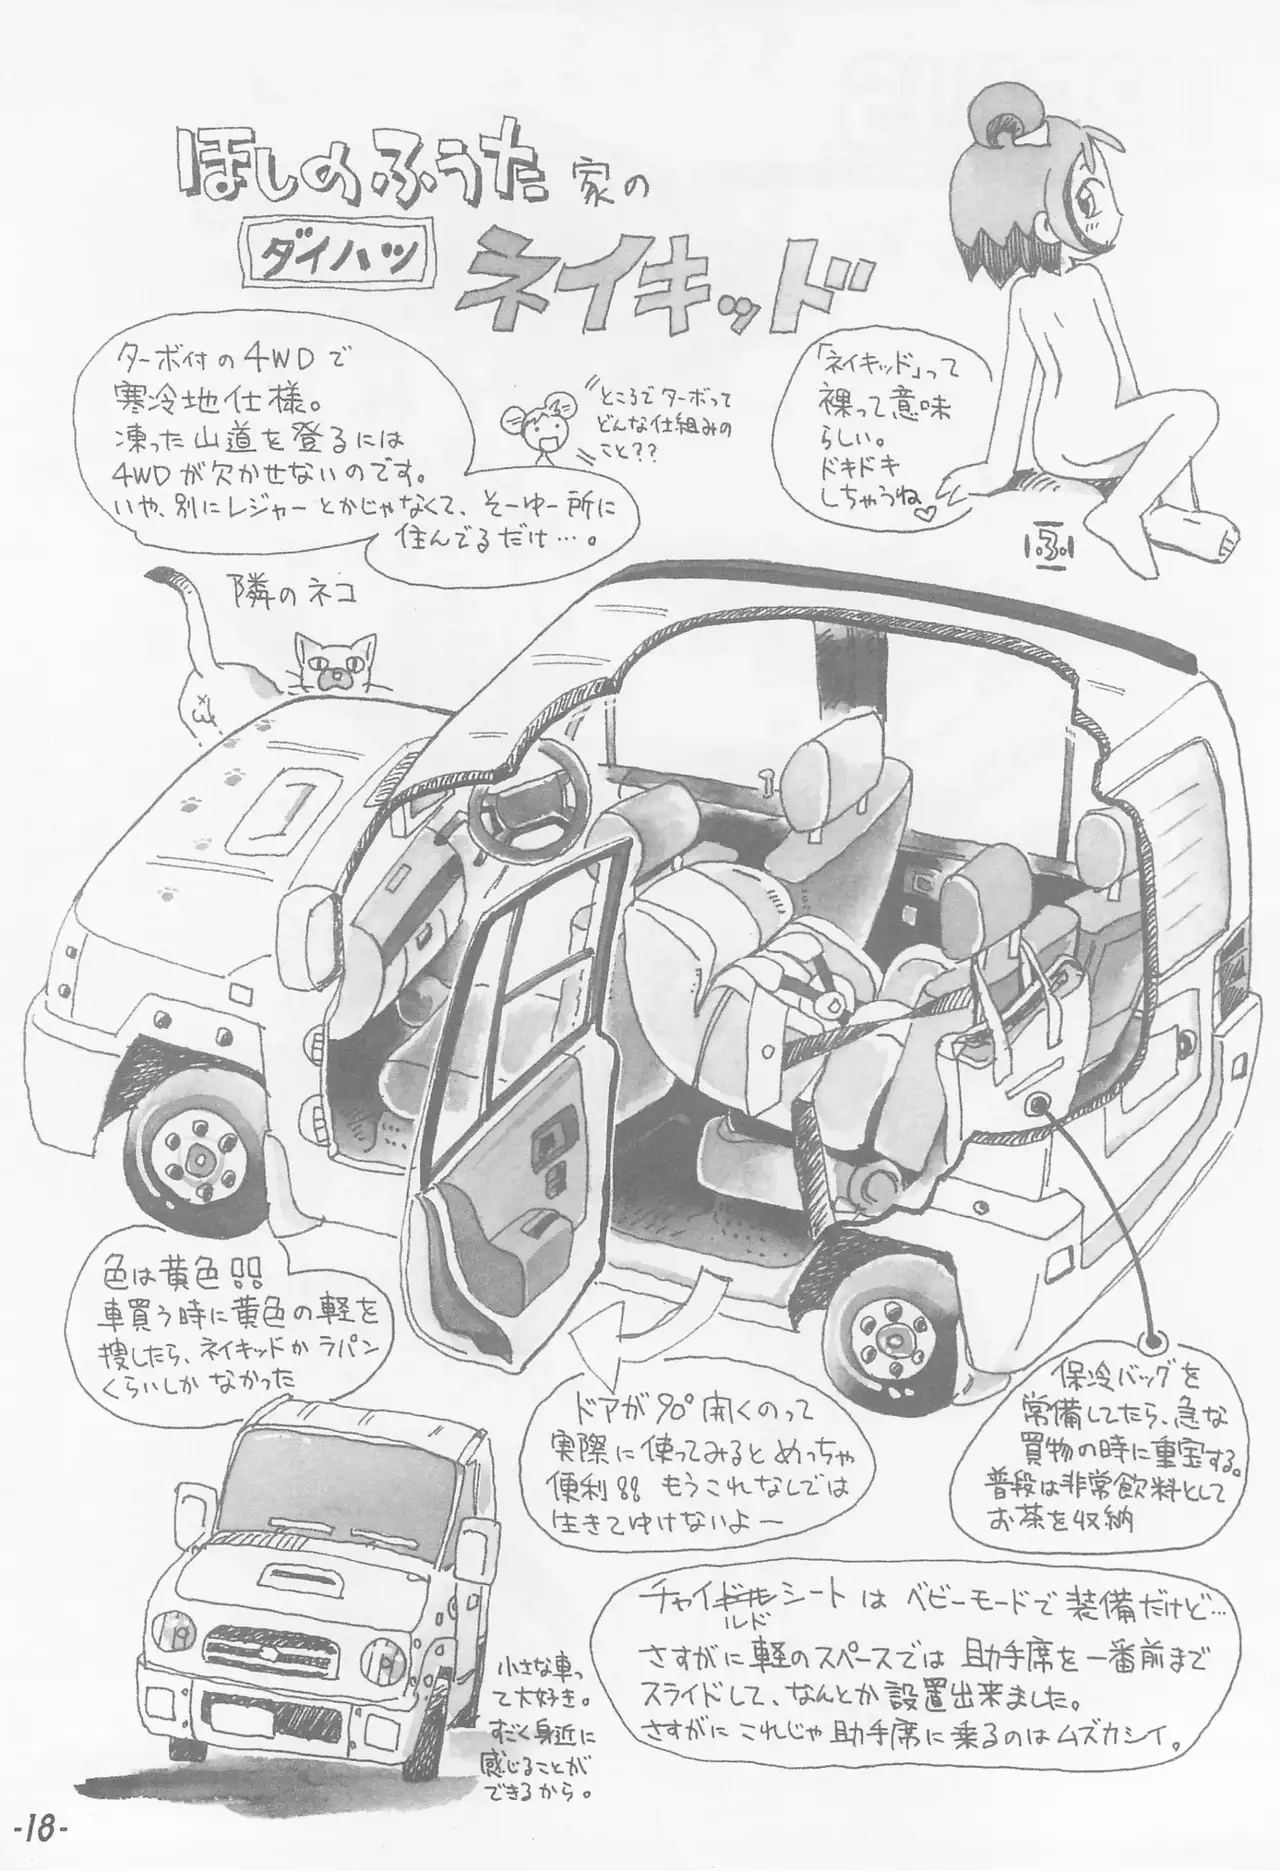 ほしのふうた家の
ダイハツ
ネイキッド
ターボ付の4WDで
寒冷地仕様。
凍った山道を登るには
4WDが欠かせないのです。
いや、別にレジャーとかじゃなくて、そーゆー所に
住んでるだけ…。
ところでターボって
どんな仕組みの
こと??
「ネイキッド」って
裸って意味
らしい。
ドキドキ
しちゃうね♡
ふ
隣のネコ
色は黄色!!
車買う時に黄色の軽を
捜したら、ネイキッドかラパン
くらいしかなかった
ドアが90°開くのって
実際に使ってみるとめっちゃ
便利!! もうこれなしでは
生きてゆけないよー
保冷バッグを
常備してたら、急な
買物の時に重宝する。
普段は非常飲料として
お茶を収納
チャイルドシートはベビーモードで装備だけど…
さすがに軽のスペースでは助手席を一番前まで
スライドして、なんとか設置出来ました。
さすがにこれじゃ助手席に乗るのはムズカシイ。
小さな車っ
て大好き。
すごく身近に
感じることが
できるから。
-18-